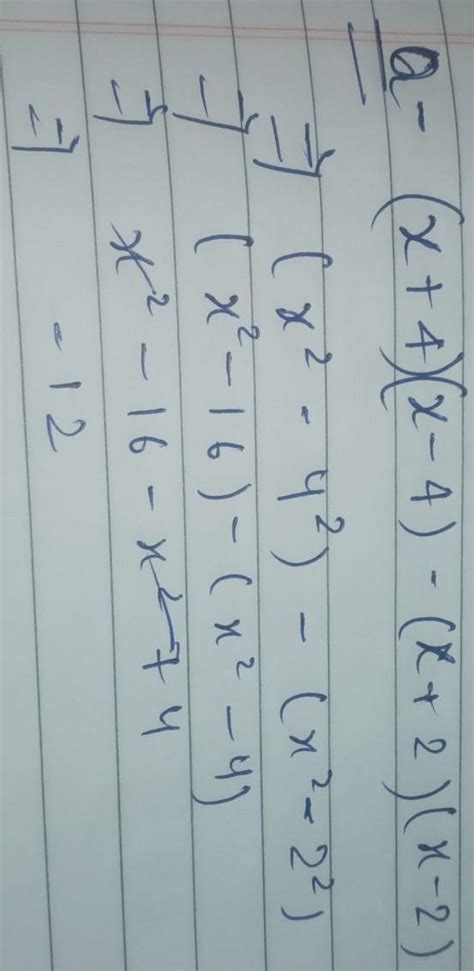 Q- (x+4)(x-4) - (x+2)(x-2)
⇒ (x² - 4²) - (x² - 2²)
⇒ (x² - 16) - (x² - 4)
⇒ x² - 16 - x² + 4
⇒ - 12